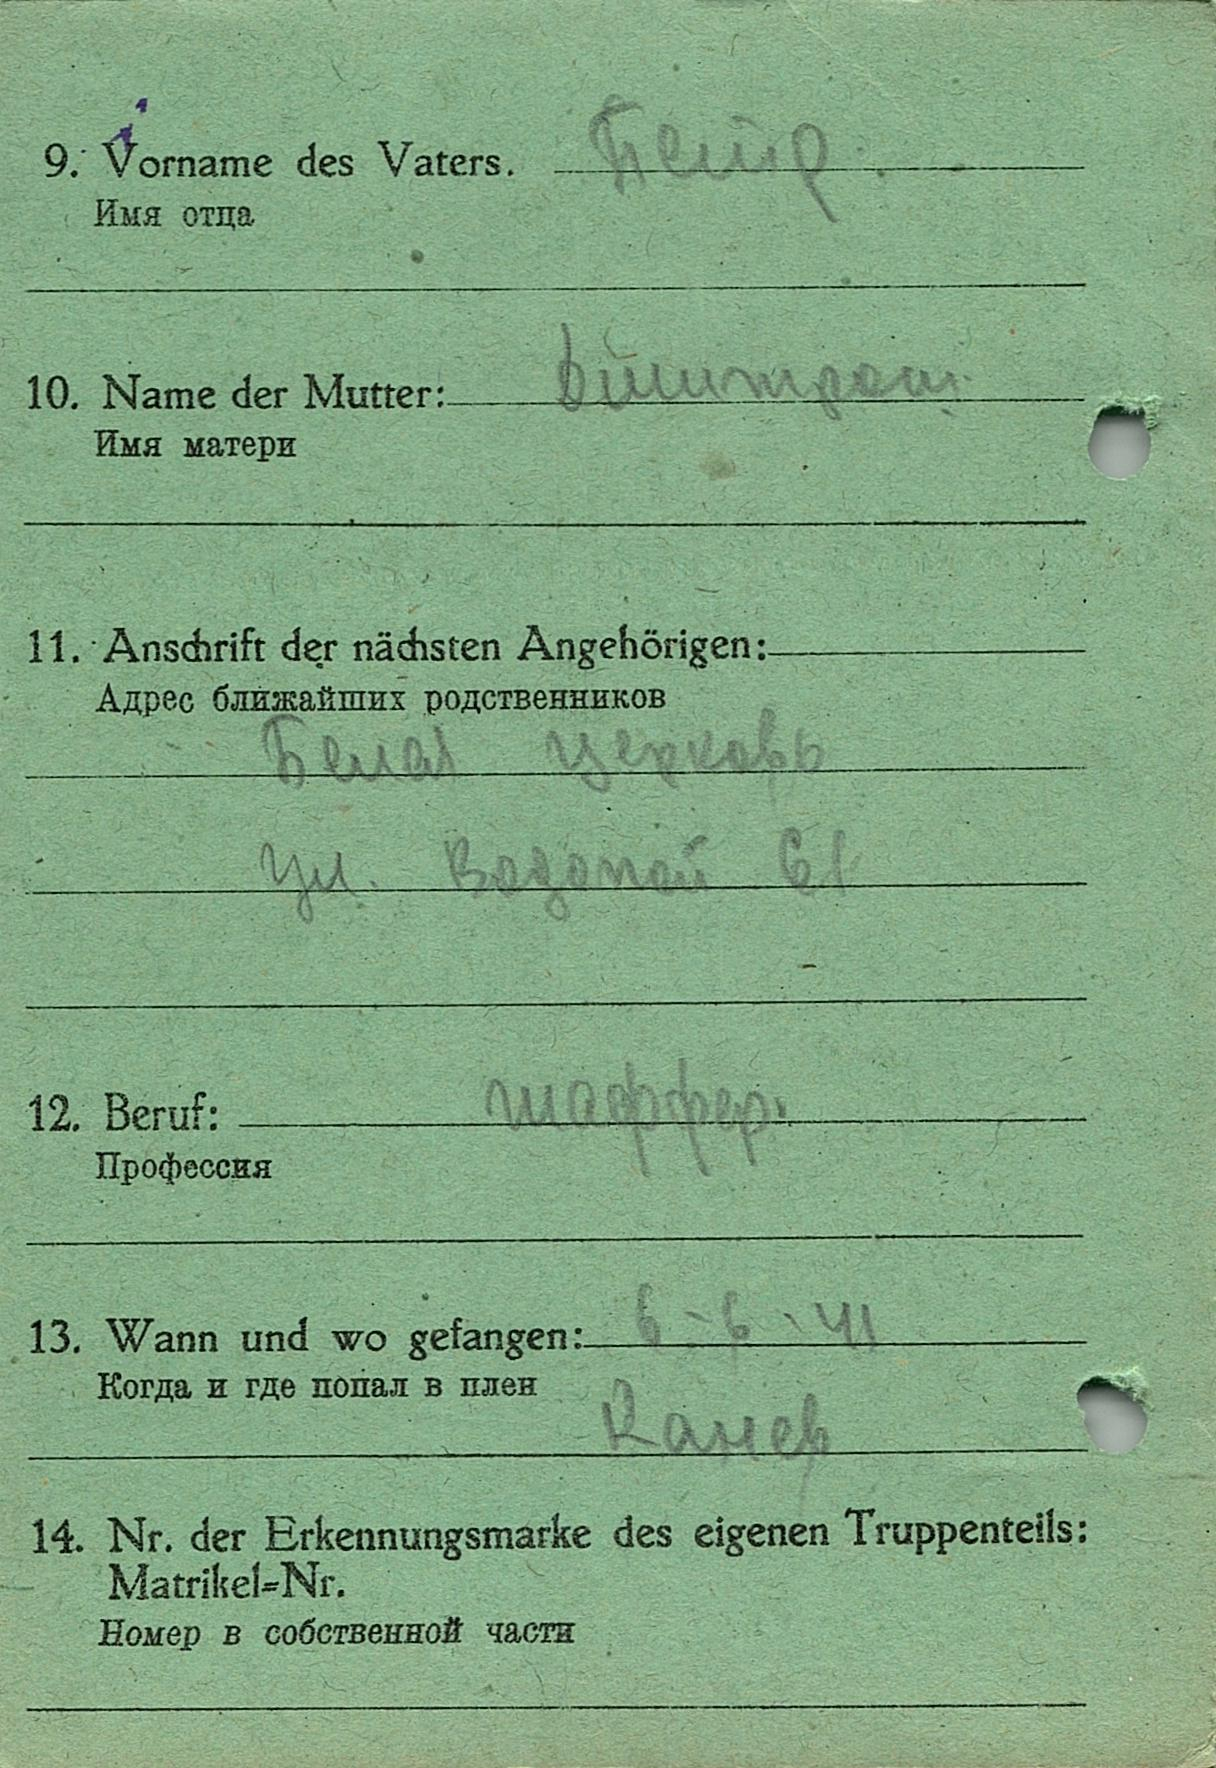 9. Vorname des Vaters.
Имя отца
10. Name der Mutter:
Имя матери
11. Anschrift der nächsten Angehörigen:
Адрес ближайших родственников
Белая церковь
ул. Водопой 61
12. Beruf: шаффер.
Профессия
13. Wann und wo gefangen: 6-6-41
Когда и где попал в плен
Канев
14. Nr. der Erkennungsmarke des eigenen Truppenteils:
Matrikel=Nr.
Номер в собственной части